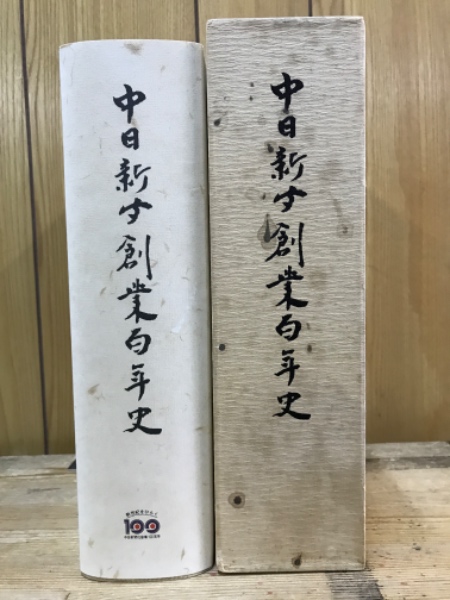 中日新聞創業百年史
100
中日新聞創業百年史